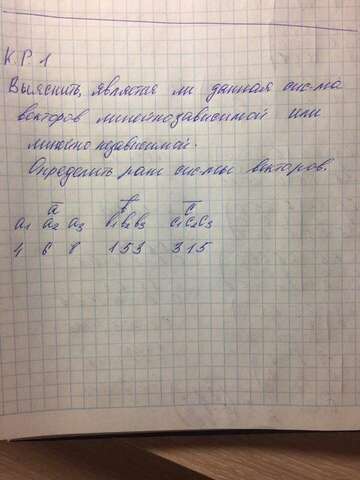 К.Р. 1
Выяснить, является ли данная сис-ма
векторов линейнозависимой или
линейно независимой.
Определить ранг сис-мы векторов.
a̅ b̅ c̅
a₁ a₂ a₃ b₁b₂b₃ c₁c₂c₃
4 6 8 1 5 3 3 1 5